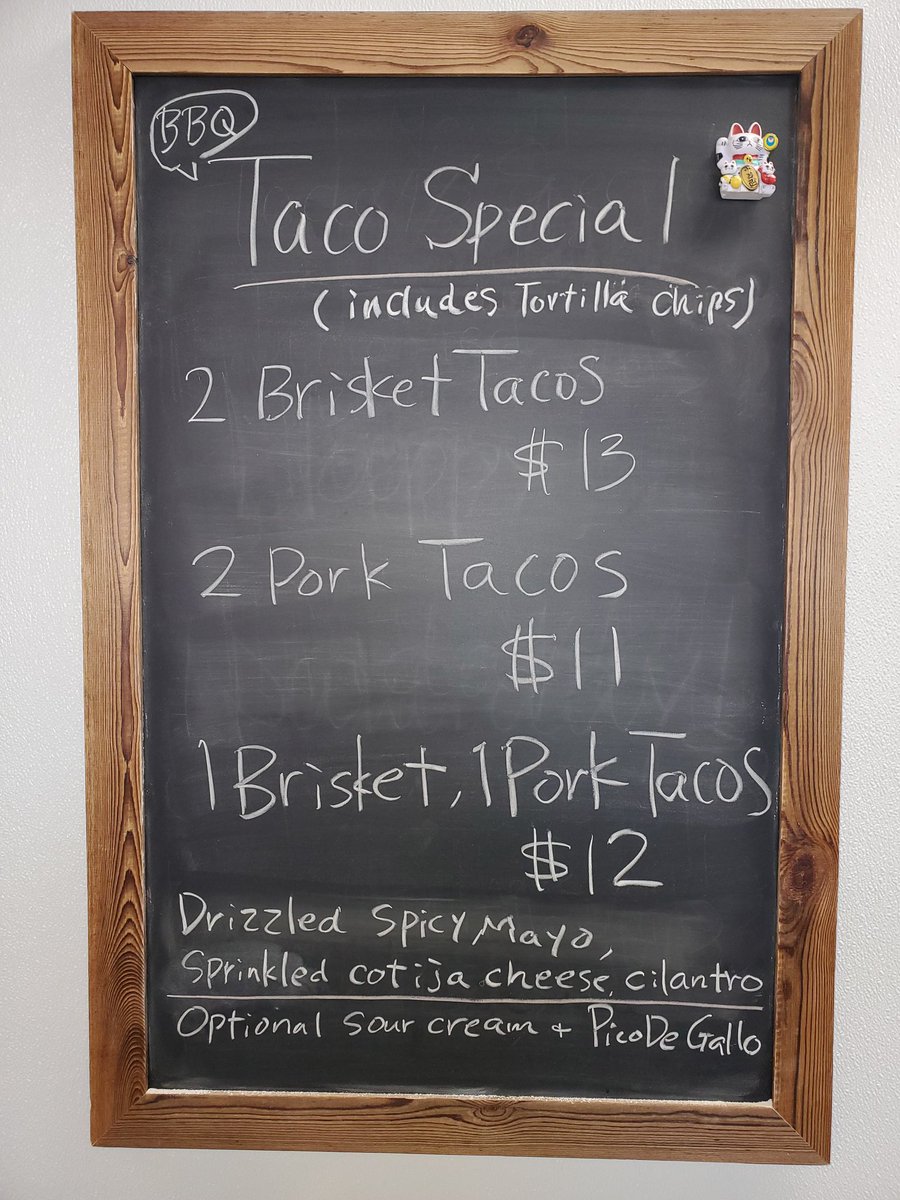 BBQ
Taco Special
(includes Tortilla chips)
2 Brisket Tacos
$13
2 Pork Tacos
$11
1 Brisket, 1 Pork Tacos
$12
Drizzled Spicy Mayo,
Sprinkled cotija cheese, cilantro
Optional sour cream + Pico De Gallo